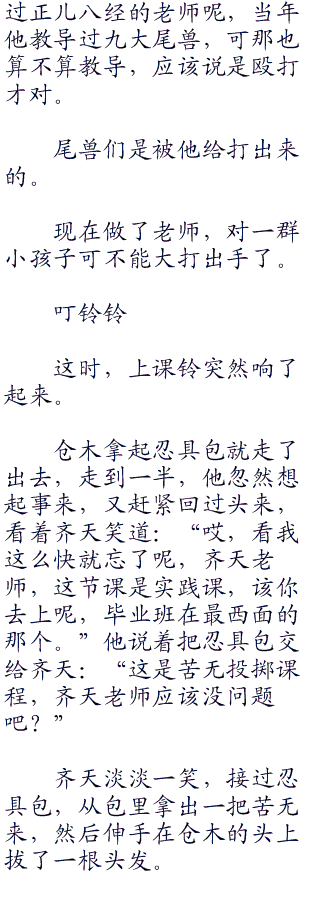 过正儿八经的老师呢，当年
他教导过九大尾兽，可那也
算不算教导，应该说是殴打
才对。
尾兽们是被他给打出来
的。
现在做了老师，对一群
小孩子可不能大打出手了。
叮铃铃
这时，上课铃突然响了
起来。
仓木拿起忍具包就走了
出去，走到一半，他忽然想
起事来，又赶紧回过头来，
看着齐天笑道：“哎，看我
这么快就忘了呢，齐天老
师，这节课是实践课，该你
去上呢，毕业班在最西面的
那个。”他说着把忍具包交
给齐天：“这是苦无投掷课
程，齐天老师应该没问题
吧？”
齐天淡淡一笑，接过忍
具包，从包里拿出一把苦无
来，然后伸手在仓木的头上
拔了一根头发。